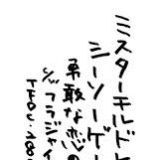 ミスターチルドレ
シーソーゲー
勇敢な恋の
フラジャイ
TFDC-280